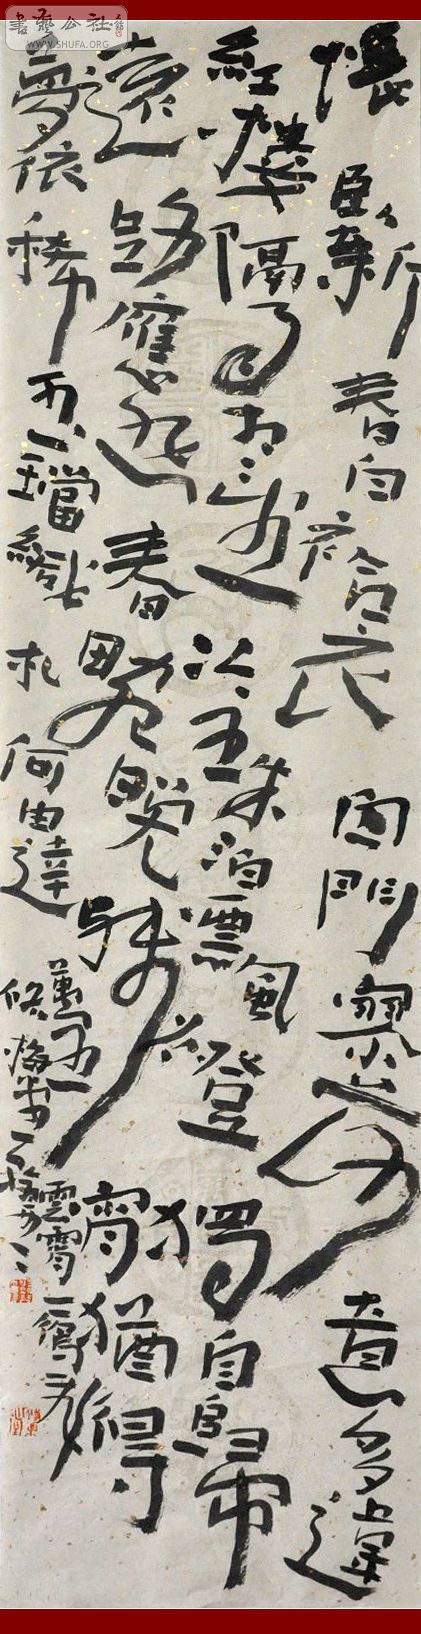 書藝公社
WWW.SHUFA.ORG
悵臥新春白袷衣 白門寥落意多違
紅樓隔雨相望冷 珠箔飄燈獨自歸
遠路應悲春晼晚 殘宵猶得
夢依稀 玉璫緘札何由達 萬里雲
一雁飛